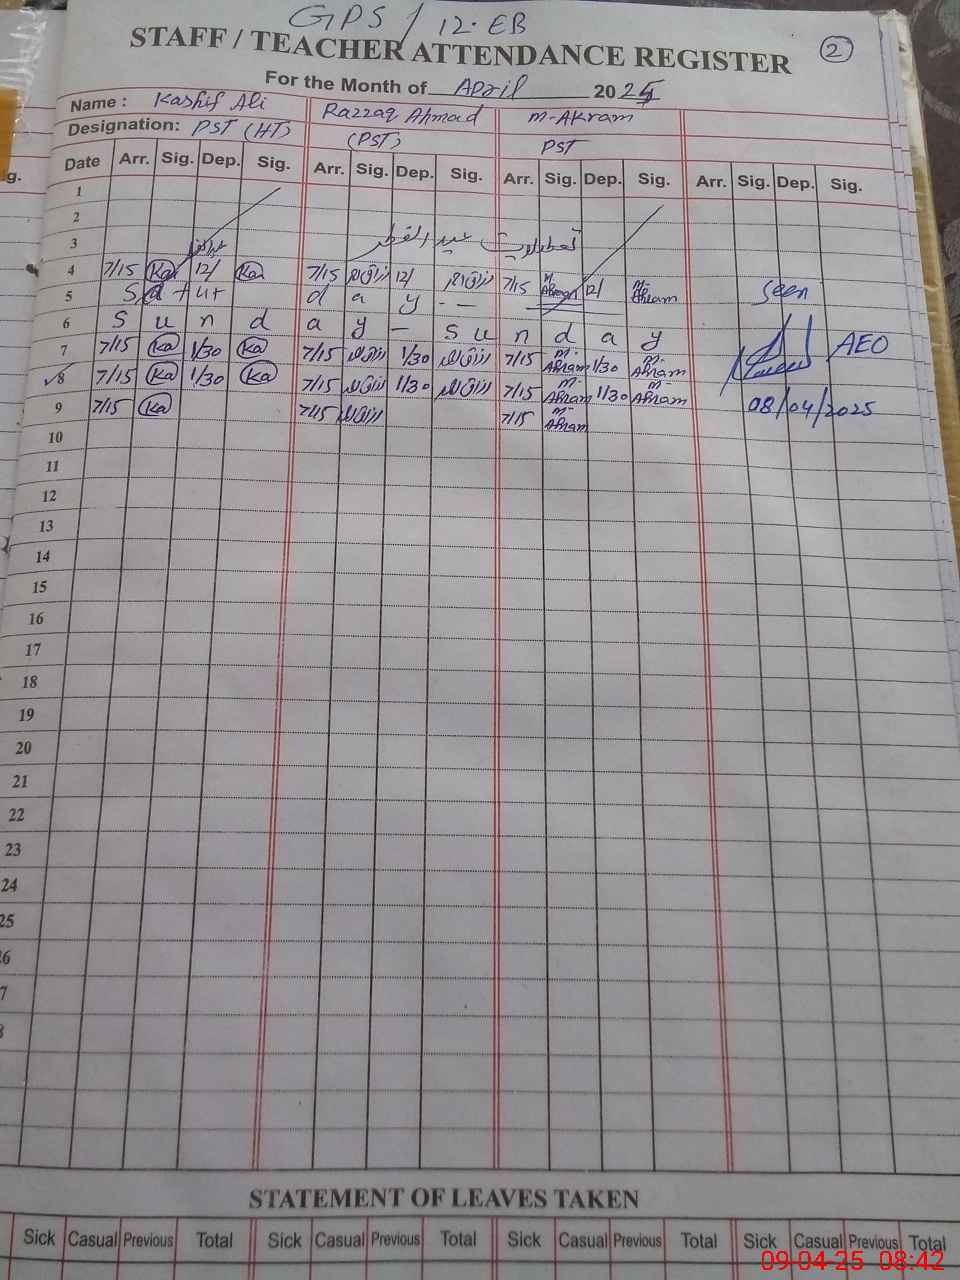 GPS / 12.EB
STAFF / TEACHER ATTENDANCE REGISTER
2
For the Month of April 2025
Name : Kashif Ali Razzaq Ahmad M-Akram
Designation: PST (HT) (PST) PST
g.
Date Arr. Sig. Dep. Sig. Arr. Sig. Dep. Sig. Arr. Sig. Dep. Sig. Arr. Sig. Dep. Sig.
1
2
3 تعطیلات عید الفطر
4 7/15 Ka 12/ Ka 7/15 12/ 7/15 M. Akram 12/ M. Akram Seen
5 d a y - -
6 S u n d a y - S u n d a y
7 7/15 Ka 1/30 Ka 7/15 1/30 7/15 M. Akram 1/30 M. Akram AEO
8 7/15 Ka 1/30 Ka 7/15 1/30 7/15 M. Akram 1/30 M. Akram
9 7/15 Ka 7/15 7/15 M. Akram 08/04/2025
10
11
12
13
14
15
16
17
18
19
20
21
22
23
24
25
6
7
8
STATEMENT OF LEAVES TAKEN
Sick Casual Previous Total Sick Casual Previous Total Sick Casual Previous Total Sick Casual Previous Total
09-04-25 08:42